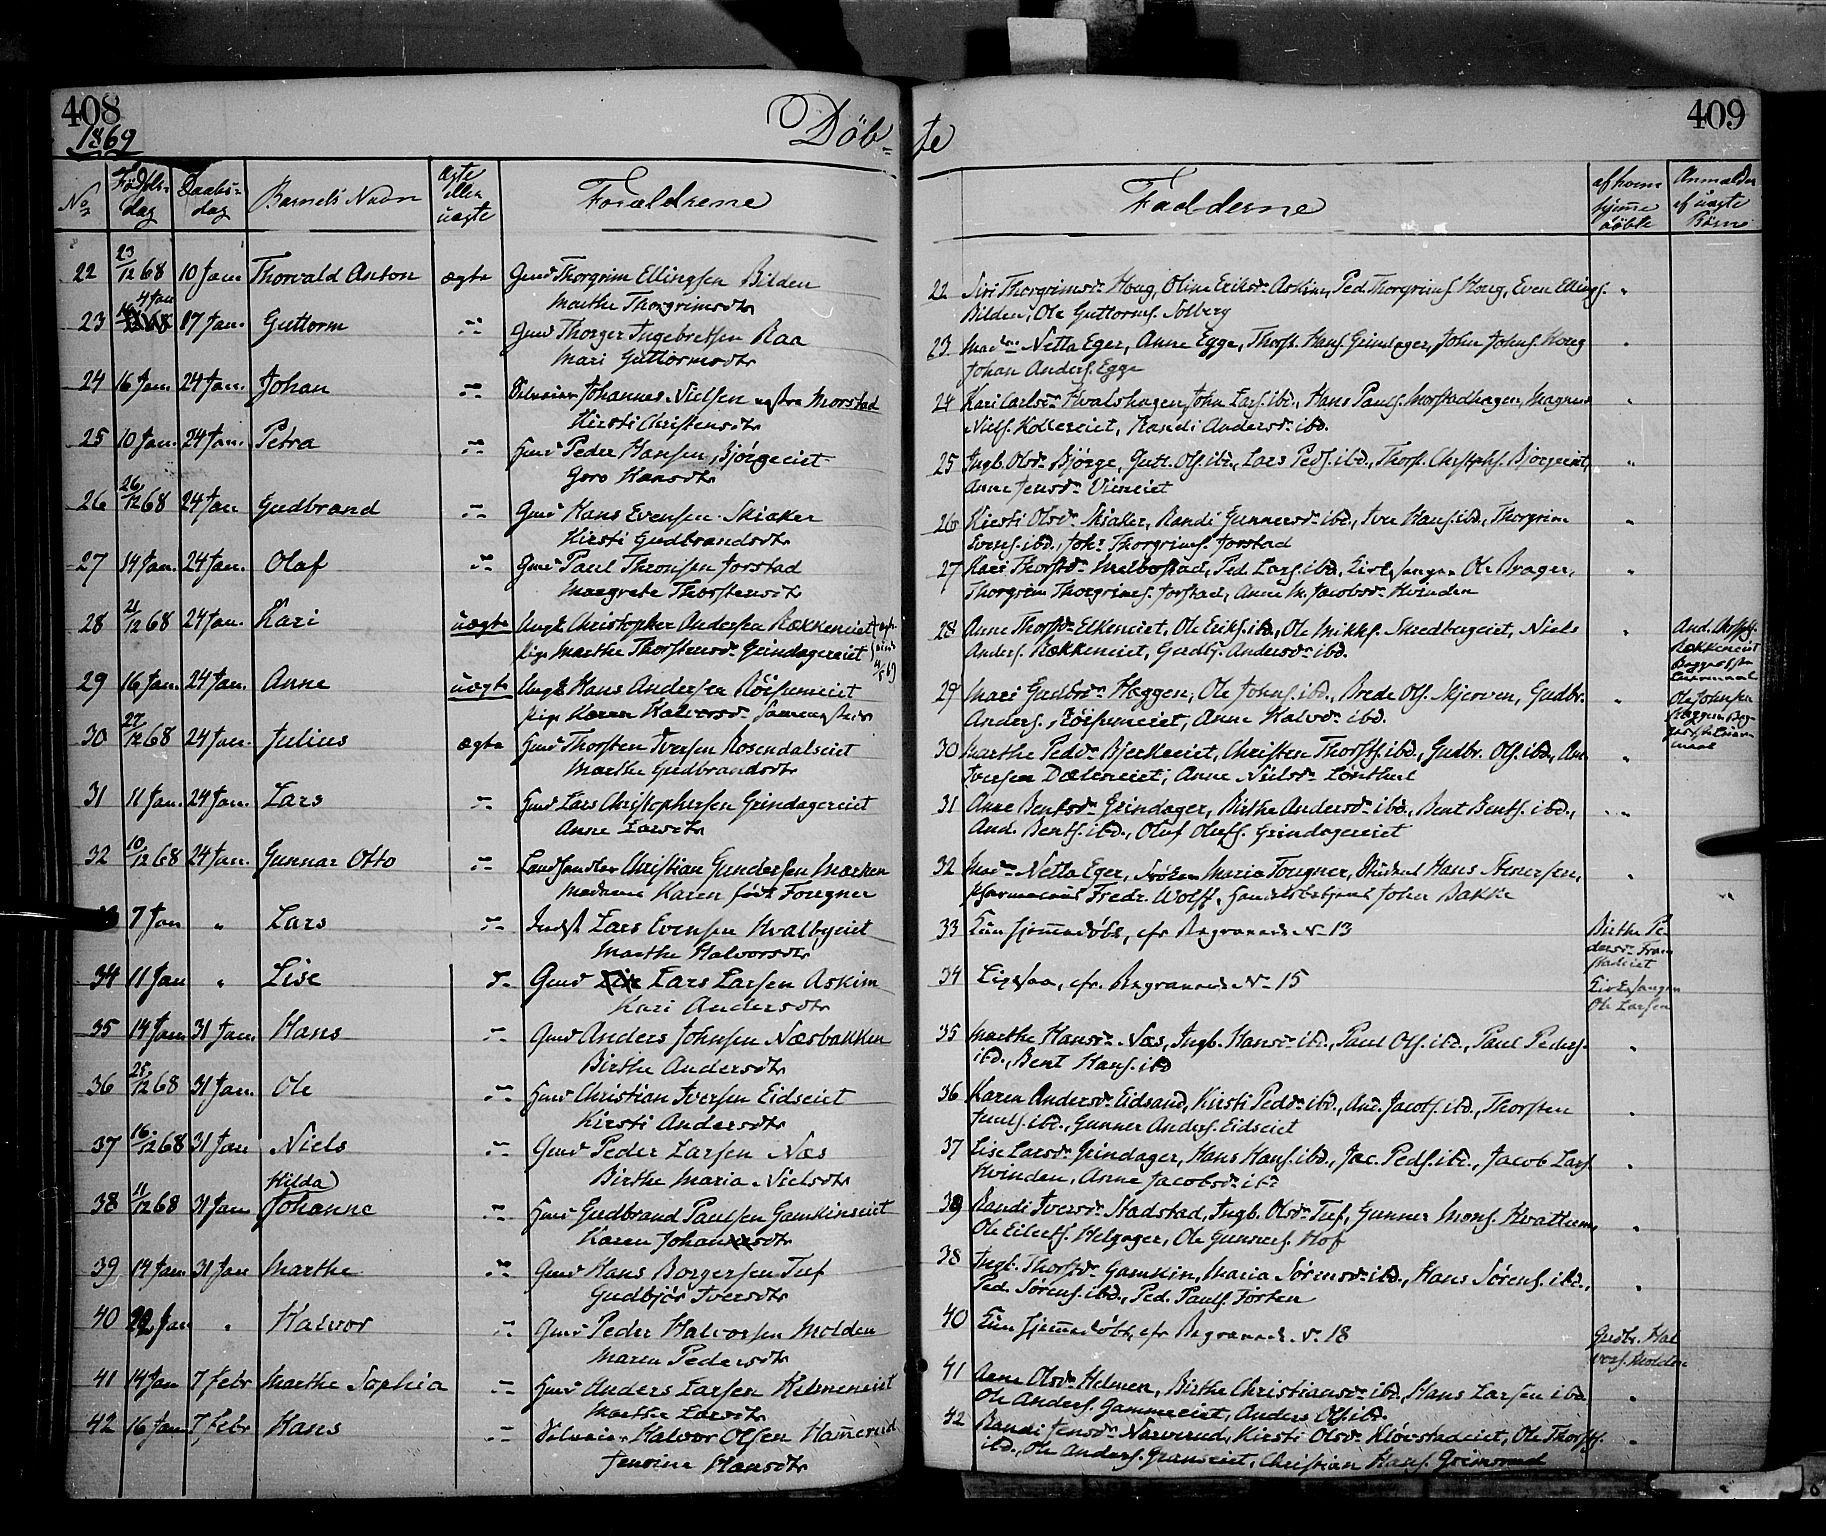 408
1869
Døb-
No
Fødsels-
dag
Daabs-
dag
Barnets Navn
Ægte
eller
uægte
Forældrene
22 23/12 68 10 Jan Thorvald Anton ægte Gmd Thorgrim Ellingsen Bilden
Marthe Thorgrimsdtr
23 4 Jan 17 Jan. Guttorm Gmd Thorger Ingebretsen Raa
Mari Guttormsdtr
24 16 Jan. 24 Jan. Johan Johannes Nielsen Morstad
Kirsti Christensdtr
25 10 Jan. 24 Jan. Petra Hmd Peder Hansen Bjørgeeiet
Goro Hansdtr
26 26/12 68 24 Jan Gudbrand Gmd Hans Evensen Skiaker
Kirsti Gudbrandsdtr
27 14 Jan. 24 Jan. Olaf Gmd Paul Thronsen Jorstad
Margrete Thorstensdtr
28 21/12 68 24 Jan. Kari uægte Ungk Christopher Andersen Rækkeneiet
Pige Marthe Thorstensdr Grindagereiet
29 16 Jan. 24 Jan. Anne uægte Ungk Hans Andersen Røisumeiet
Pige Karen Halvorsdr
30 27/12 68 24 Jan. Julius ægte Hmd Thorsten Iversen Rosendalseiet
Marthe Gudbrandsdtr
31 11 Jan. 24 Jan. Lars Hmd Lars Christophersen Grindagereiet
Anne Larsdtr
32 10/12 68 24 Jan. Gunnar Otto Landhandler Christian Gundersen Marken
Madame Karen født Fougner
7 Jan " Lars Indst Lars Evensen Hvalbyeiet
Marthe Halvorsdtr
34 11 Jan " Lise Gmd Lars Larsen Askim
Kari Andersdtr
35 14 Jan 31 Jan. Hans Gmd Anders Johnsen Næsbakken
Birthe Andersdtr
36 25/12 68 31 Jan. Ole Hmd Christian Iversen Eidseiet
Kirsti Andersdtr
37 16/12 68 31 Jan Niels Gmd Peder Larsen Næs
Birthe Maria Nielsdtr
Hilda
38 11/12 68 31 Jan Johanne Hmd Gudbrand Paulsen Gamkinseiet
Karen Johansdtr
39 14 Jan 31 Jan Marthe Gmd Hans Borgersen Tuf
Gudbjør Iversdtr
40 22 Jan " Halvor Gmd Peder Halvorsen Molden
Maren Pedersdtr
41 14 Jan 7 Febr Marthe Sophia Hmd Anders Larsen Helmeneiet
Marthe Larsdtr
42 16 Jan 7 Febr Hans Halvor Olsen Hammerud
Jensine Hansdtr
409
te
Fadderne
af hvem
hjemme
døbte
Anmelder
af uægte
Børn
22 Siri Thorgrimsdr Haug, Oline Eriksdr Askim, Ped. Thorgrims. Haug, Even Ellings.
Bilden, Ole Guttorms. Solberg
23 Madme Netta Eger, Anne Egge, Thorst. Hans. Grindager, John Johns. Haug
Johan Anders. Egge
24 Kari Carlsdr Hvalshagen, John Lars. ibd., Hans Pauls. Morstadhagen, Magnus
Niels. Kollereiet, Randi Andersdr ibd.
25 Ingb. Olsdr Bjørge, Gutt. Ols. ibd., Lars Peds. ibd., Thorst. Christphs. Bjørgeeiet,
Anne Jensdr Vieneiet
26 Kirsti Olsdr Skiaker, Randi Gunnersdr ibd., Iver Hans. ibd., Thorgrim
Evens. ibd., Johs Thorgrims. Jorstad
27 Kari Thorstdr Melbostad, Ped. Lars. ibd., Kirkesanger Ole Brager,
Thorgrim Thorgrims. Jorstad, Anne M. Jacobsdr Hvinden
28 Anne Thorstdr Elkeneiet, Ole Eriks. ibd., Ole Mikks. Smedbergeiet, Niels
Anders. Rækkeneiet, Gudbj. Andersdr ibd.
And. Chrstphs.
Rækkeneiet
29 Mari Gudbrdr Hæggen, Ole Johns. ibd., Brede Ols. Skjerven, Gudbr.
Anders. Røisumeiet, Anne Halvdr ibd.
Ole Johnsen
30 Marthe Peddr Bjerkeeiet, Christen Thorsts. ibd., Gudbr. Ols. ibd., And.
Iversen Dæleneiet, Anne Nielsdr
31 Anne Bentsdr Grindager, Birthe Andersdr ibd., Bent Bents. ibd.,
And. Bents. ibd., Oluf Olufs. Grindagereiet
32 Madme Netta Eger, Frøken Maria Fougner, Student Hans Stenersen,
Pharmaceut Fredr. Wolff, Handelsbetjent John Bakke
33 Kun hjemmedøbt, cfr Begravede No 13
Birthe Pe-
dersdr Fram-
stadeiet
34 Ligesaa, cfr. Begravede No 15
Kirkesanger
Ole Larsen
35 Marthe Hansdr Næs, Ingb. Hansdr ibd., Paul Ols. ibd., Paul Peders.
ibd., Bent Hans. ibd
36 Karen Andersdr Eidsand, Kirsti Peddr ibd., And. Jacobs. ibd., Thorsten
Juuls. ibd., Gunner Anders. Eidseiet
37 Lise Larsdr Grindager, Hans Hans. ibd., Jac. Peds. ibd., Jacob Lars.
Hvinden, Anne Jacobsdr ibd
39 Randi Iversdr Stadstad, Ingb. Olsdr Tuf, Gunner Mons. Hvattum,
Ole Eilerts. Helgager, Ole Gunners. Hof
38 Ingb. Thorstdr Gamkin, Maria Sørensdr ibd., Hans Sørens. ibd.,
Ped. Sørens. ibd., Ped. Pauls. Torten
40 Kun hjemmedøbt, cfr Begravede No 18
Gudbr. Hal-
vors. Molden
41 Anne Olsdr Helmen, Birthe Christiansdr ibd, Hans Larsen ibd
Ole Anders. Gammeeiet, Anders Ols. ibd.
42 Randi Jensdr Narverud, Kirsti Olsdr Kløvstadeiet, Ole Thorsts.
ibd., Ole Anders. Granseiet, Christian Hans. Grimsrud